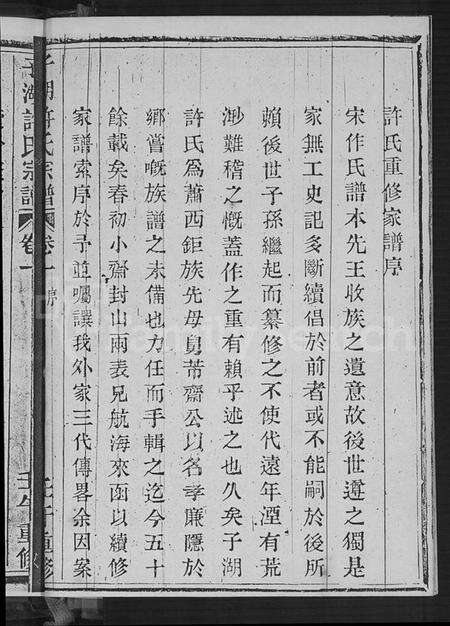 許氏重修家譜序
宋作氏譜本先王收族之遺意故後世遵之獨是
家無工史記多斷續倡於前者或不能嗣於後所
頼後世子孫繼起而纂修之不使代遠年湮有荒
渺難稽之慨蓋作之重有賴乎述之也久矣子湖
許氏爲蕭西鉅族先母舅芾齋公以名孝廉隱於
鄉嘗嘅族譜之未備也力任而手輯之迄今五十
餘載矣春初小齋封山兩表兄航海來函以續修
家譜索序於予並囑讓我外家三代傳畧余因案
子湖許氏宗譜 卷一 序 壬午重修
子湖許氏宗譜 卷一 壬午重修